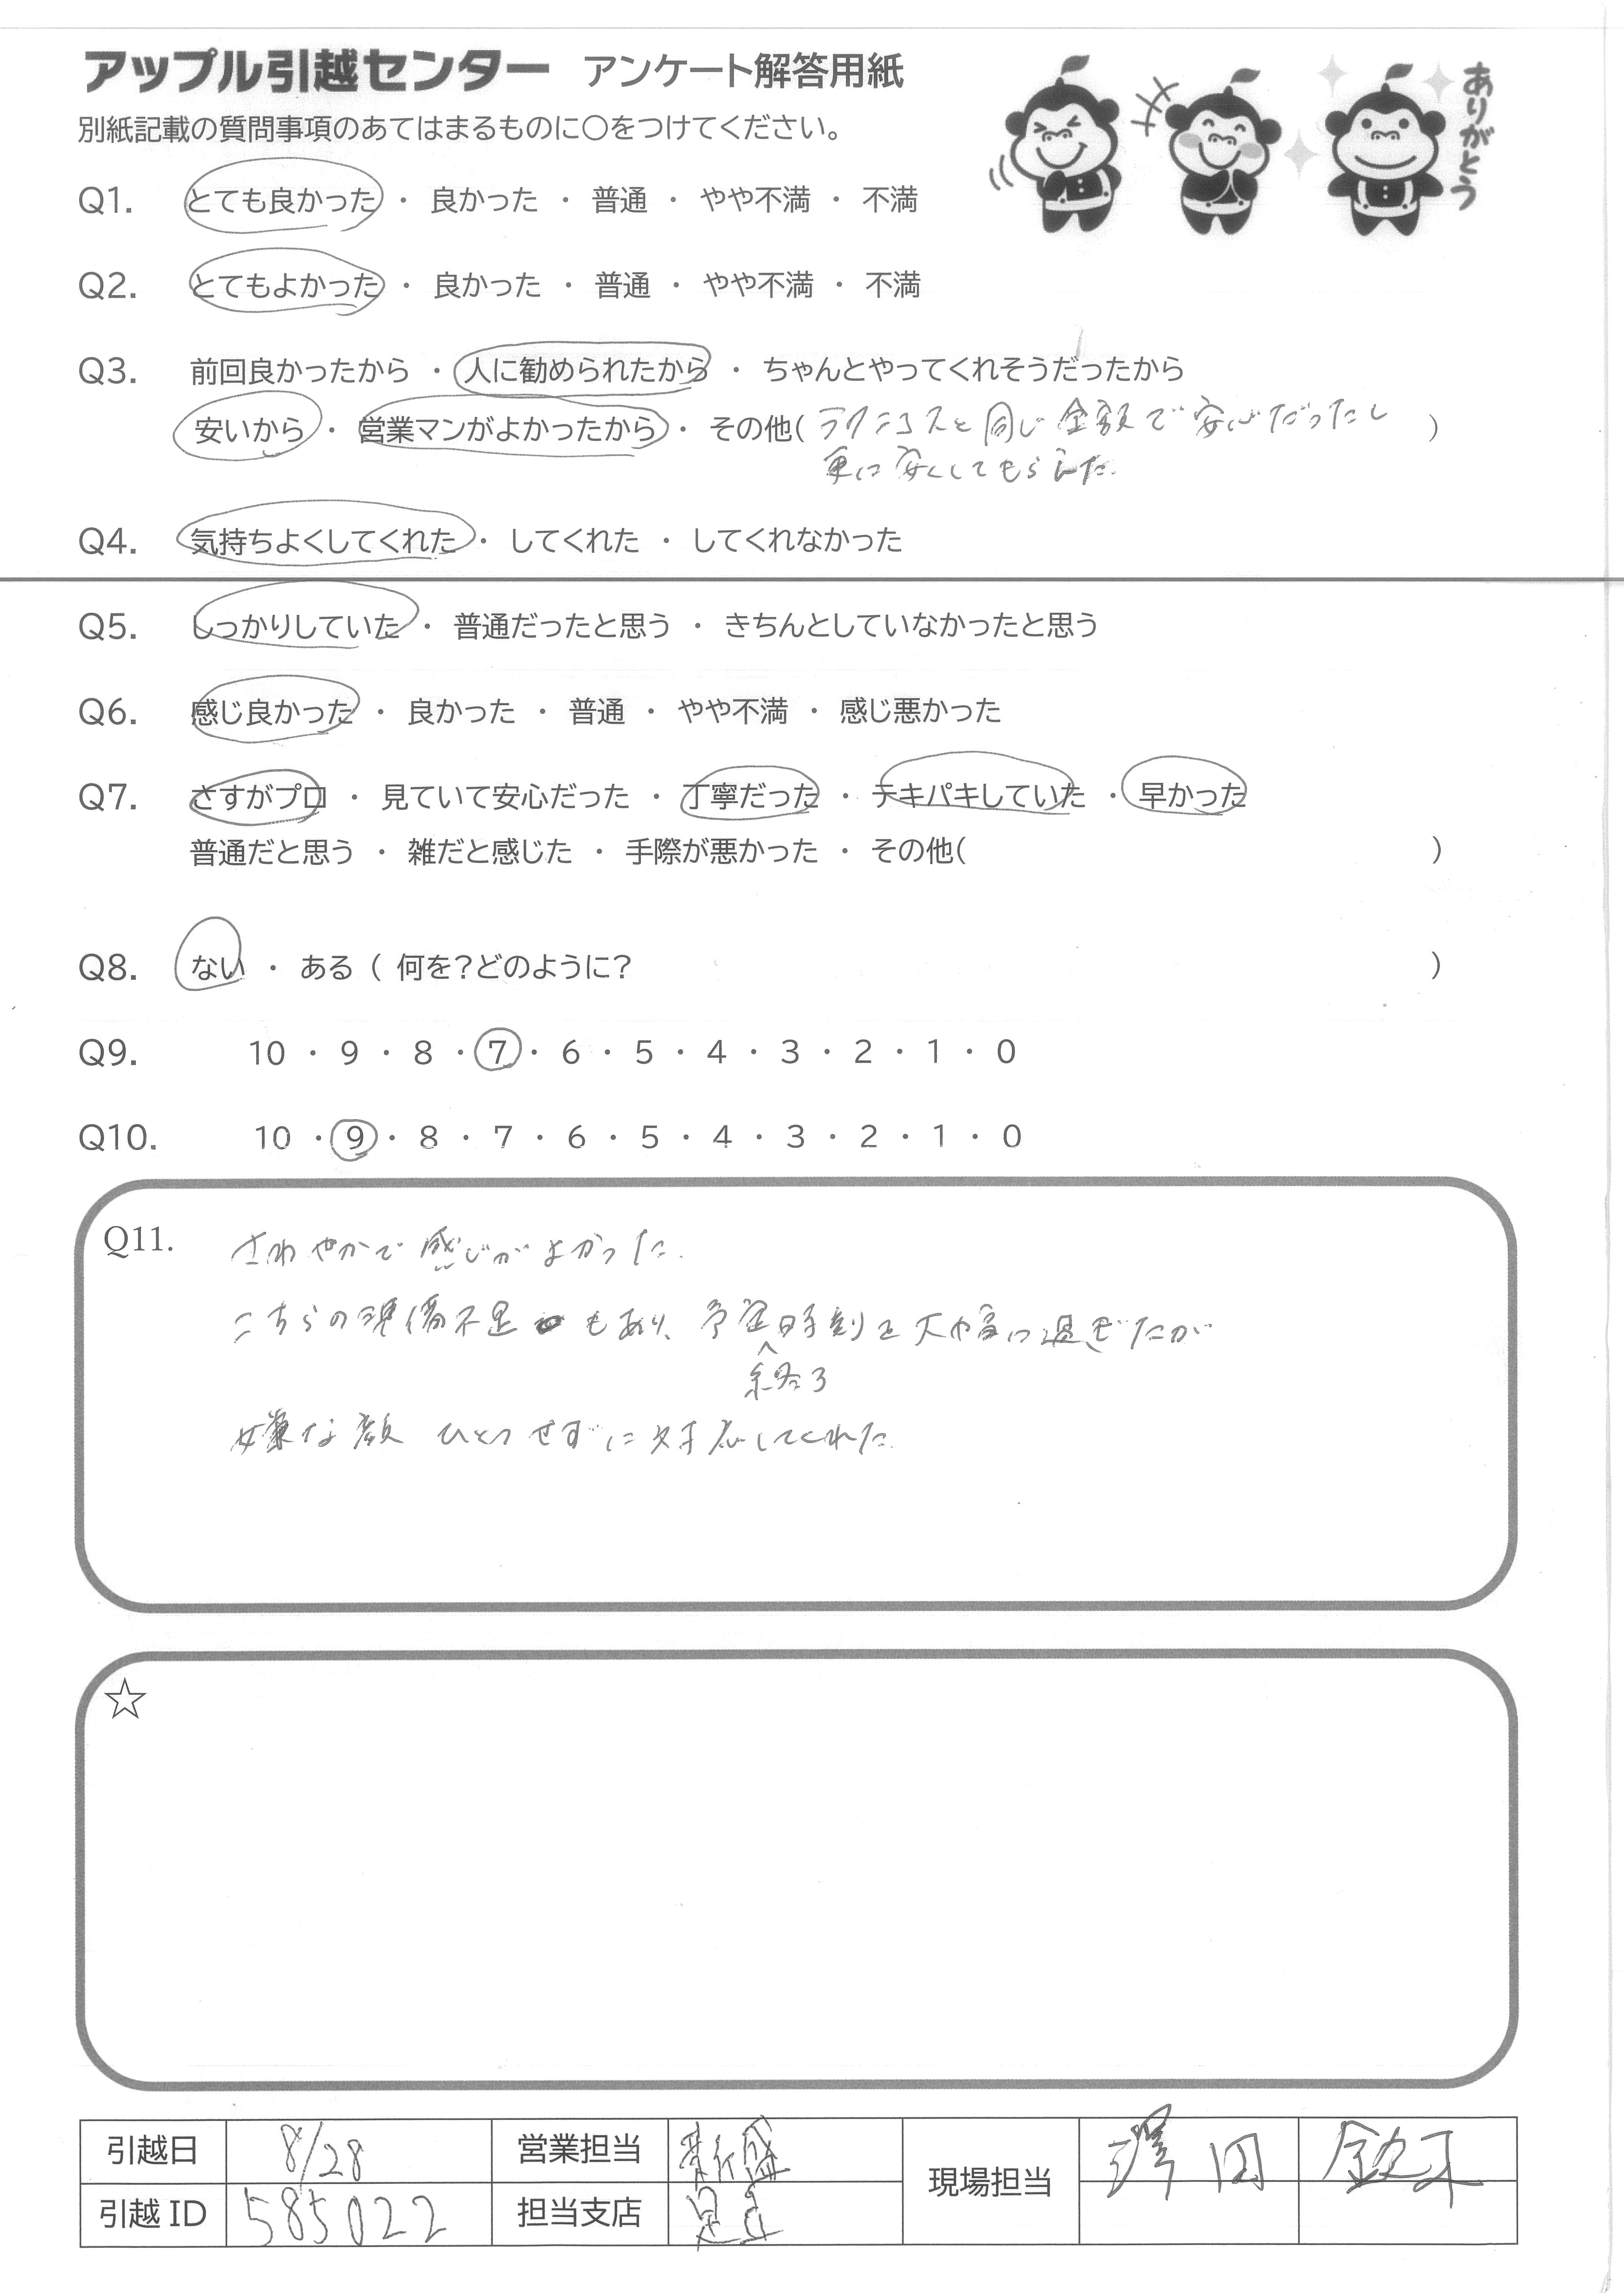 アップル引越センター アンケート解答用紙
ありがとう
別紙記載の質問事項のあてはまるものに○をつけてください。
Q1. とても良かった ・ 良かった ・ 普通 ・ やや不満 ・ 不満
Q2. とてもよかった ・ 良かった ・ 普通 ・ やや不満 ・ 不満
Q3. 前回良かったから ・ 人に勧められたから ・ ちゃんとやってくれそうだったから
安いから ・ 営業マンがよかったから ・ その他( ラクニコスと同じ金額で安心だったし )
更に安くしてもらえた.
Q4. 気持ちよくしてくれた ・ してくれた ・ してくれなかった
Q5. しっかりしていた ・ 普通だったと思う ・ きちんとしていなかったと思う
Q6. 感じ良かった ・ 良かった ・ 普通 ・ やや不満 ・ 感じ悪かった
Q7. さすがプロ ・ 見ていて安心だった ・ 丁寧だった ・ テキパキしていた ・ 早かった
普通だと思う ・ 雑だと感じた ・ 手際が悪かった ・ その他( )
Q8. ない ・ ある ( 何を?どのように? )
Q9. 10 ・ 9 ・ 8 ・ 7 ・ 6 ・ 5 ・ 4 ・ 3 ・ 2 ・ 1 ・ 0
Q10. 10 ・ 9 ・ 8 ・ 7 ・ 6 ・ 5 ・ 4 ・ 3 ・ 2 ・ 1 ・ 0
Q11. さわやかで感じがよかった.
こちらの準備不足もあり、予定時刻を大幅に過ぎたが
終了
嫌な顔ひとつせずに対応してくれた.
☆
引越日 8/28 営業担当 現場担当 澤田 鈴木
引越ID 585022 担当支店 足立